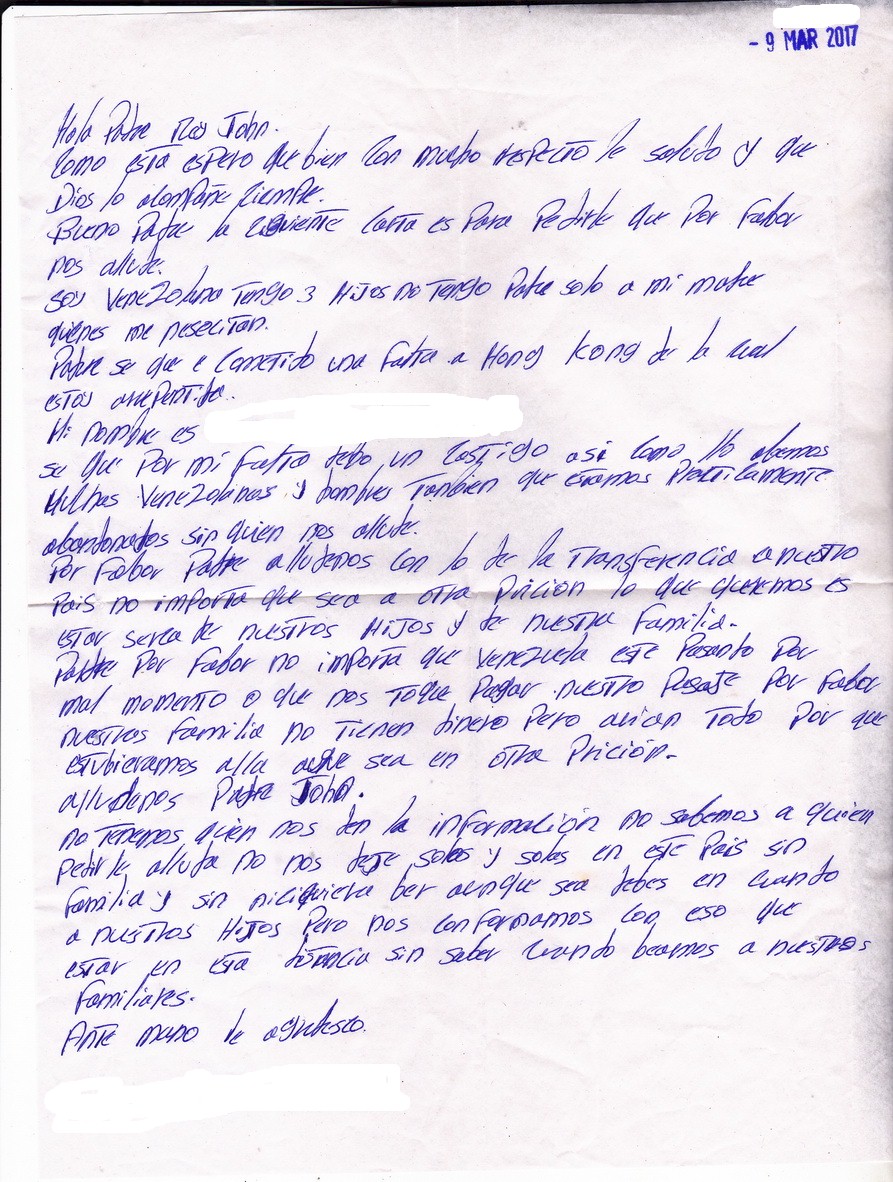 - 9 MAR 2017
Hola Padre John.
Como está espero que bien con mucho respecto le saludo y que
Dios lo acompañe siempre.
Bueno Padre la siguiente carta es Para Pedirle que Por Fabor
nos allude.
Soy Venezolana Tengo 3 Hijos no Tengo Padre solo a mi madre
quienes me nesecitan.
Padre se que e Cometido una Falta a Hong Kong de la cual
estoy arrepentida.
Mi nombre es
se que Por mi Falta debo un Castigo asi como Yo abemos
Muchas Venezolanas y hombres Tanbien que estamos Practicamente
abandonados sin quien nos allude.
Por Fabor Padre alludenos con lo de la Transferencia a nuestro
Pais no importa que sea a otra Pricion lo que queremos es
estar serca de nuestros Hijos y de nuestra Familia.
Padre Por Fabor no importa que Venezuela este Pasando Por
mal momento o que nos Toque Pagar nuestro Pasaje Por Fabor
nuestras Familia no Tienen dinero Pero arian Todo Por que
estubieramos alla aunque sea en otra Prición.
alludanos Padre John.
no Tenemos quien nos den la información no sabemos a quien
Pedirle alluda no nos deje solos y solas en este Pais sin
Familia y sin niciquiera ber aunque sea debes en cuando
a nuestros Hijos Pero nos conformamos con eso que
estar en esta distancia sin saber cuando beamos a nuestros
Familiares.
Ante mano le agradesco.